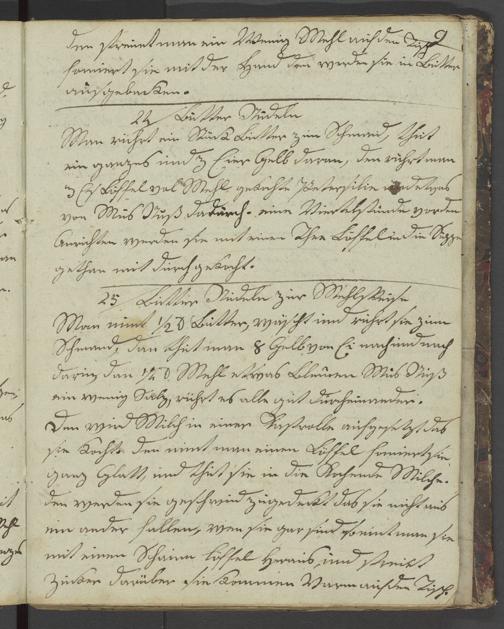 9
den streüet man ein Wenig Mehl auf den Tisch
formiert sie mit der Hand den werden sie in Butter
ausgebacken.
24 Butter Nudeln
Man rührt ein Stück Butter zum Schmand, thut
ein ganzes und 3 Eier Gelb daran, den rührt man
3 Löffel vol Mehl gehackte Petersilie und etwas
von Mus Nuß dadurch. eine Viertelstunde vor dem
Anrichten werden sie mit einen Thee Löffel in die Suppe
gethan mit durch gekocht.
25 Butter Nudeln zur Mehl Speise
Man nimt 1/2 Butter, wäscht und rührt sie zum
Schmand, dan thut man 8 Gelb von Ei nach und nach
darin, dan Mehl etwas Mus Nuß
ein wenig Salz, rührt es alle gut durcheinander.
Den wird Milch in einer Castrolle aufgesetzt, das
sie kocht. den nimt man einen Löffel formiert sie
ganz Glatt, und thut sie in die Kochende Milch.
den werden sie geschwind zugedeckt das sie nicht aus
ein ander fallen, wen sie gar sind nimt man sie
mit einen Schaum Löffel heraus, und streüt
Zucker darüber sie kommen Warm auf den Tisch.